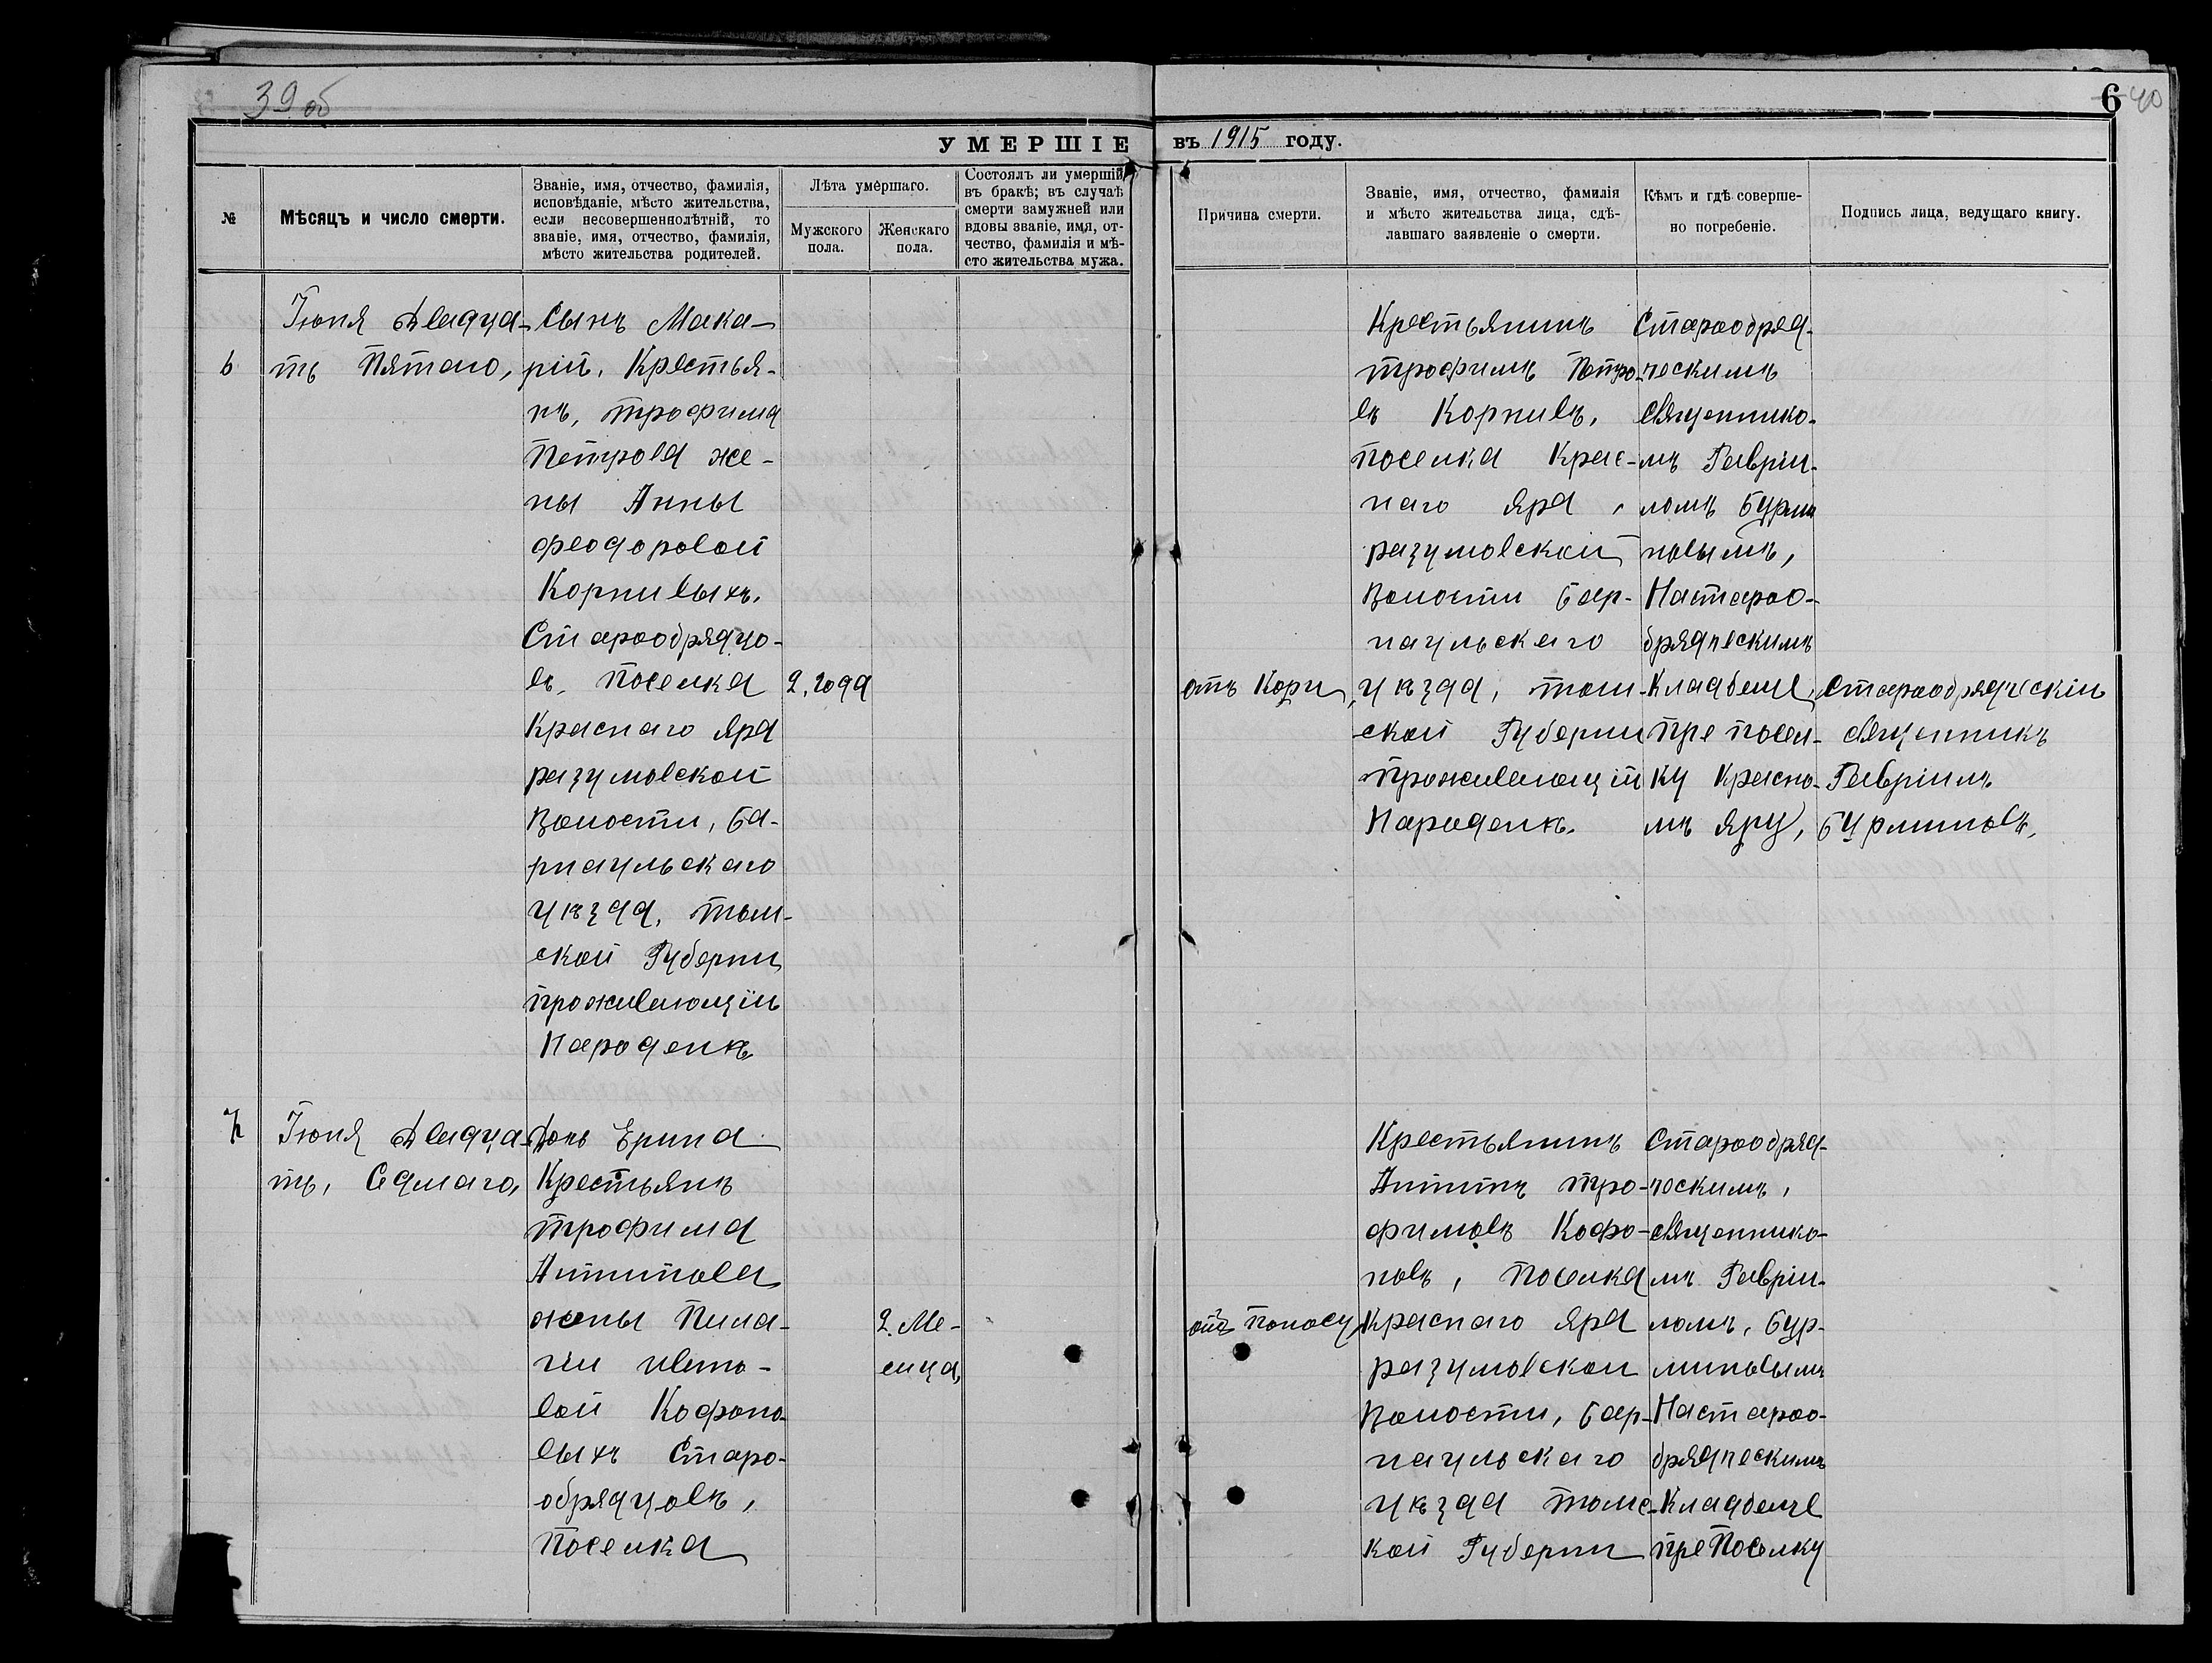 39 об
6 40
УМЕРШІЕ
въ 1915 году.
№
Мѣсяцъ и число смерти.
Званіе, имя, отчество, фамилія,
исповѣданіе, мѣсто жительства,
если несовершеннолѣтній, то
званіе, имя, отчество, фамилія,
мѣсто жительства родителей.
Лѣта умершаго.
Мужского
пола.
Женскаго
пола.
Состоялъ ли умершій
въ бракѣ; въ случаѣ
смерти замужней или
вдовы званіе, имя, от-
чество, фамилія и мѣ-
сто жительства мужа.
Причина смерти.
Званіе, имя, отчество, фамилія
и мѣсто жительства лица, сдѣ-
лавшаго заявленіе о смерти.
Кѣмъ и гдѣ соверше-
но погребеніе.
Подпись лица, ведущаго книгу.
6
Іюня Двадца-
ть Пятаго,
Сынъ Мака-
рій, Крестья-
нъ, трофима
Петрова же-
ны Анны
феодоровой
Корнивыхъ,
Старообрядцо-
въ, поселка
Краснаго Яра
разумовской
Волости, Ба-
рнаульскаго
уѣзда, том-
ской Губерни
проживающіи
Народенкѣ
2, года
отъ Кори,
Крестьянинъ
трофимъ Петро-
въ Корнивъ,
поселка Крас-
наго Яра,
разумовской
Волости Бар-
наульскаго
уѣзда, том-
ской Губерни
проживающій
Народенкѣ.
Старообряд-
ческимъ
священнико-
мъ Гавріи-
ломъ Бурми
новымъ,
Настароо-
брядческимъ
Кладбеще,
пре посел-
ку Красно-
мъ Яру,
Старообрядческіи
священникъ
Гавріилъ
Бурминовъ,
7
Іюня Двадца-
ть, Седмаго,
Дочь Ерина
Крестьянъ
трофима
Антипова
жены Пила-
гіи ивто-
вой Кофоно-
выхъ Старо-
обрядцовъ,
Поселка
2. Ме-
сица,
отъ Поносу
Крестьянинъ
Антипъ тро-
фимовъ Кофо-
новъ, Поселка
Краснаго Яра
разумовскои
Волости, Бар-
наульскаго
уѣзда томс-
кой Губерни
Старообряд-
ческимъ,
священнико-
мъ Гавріи-
ломъ, Бур-
миновымъ
Настароо-
брядческимъ
Кладбеще
пре Поселку